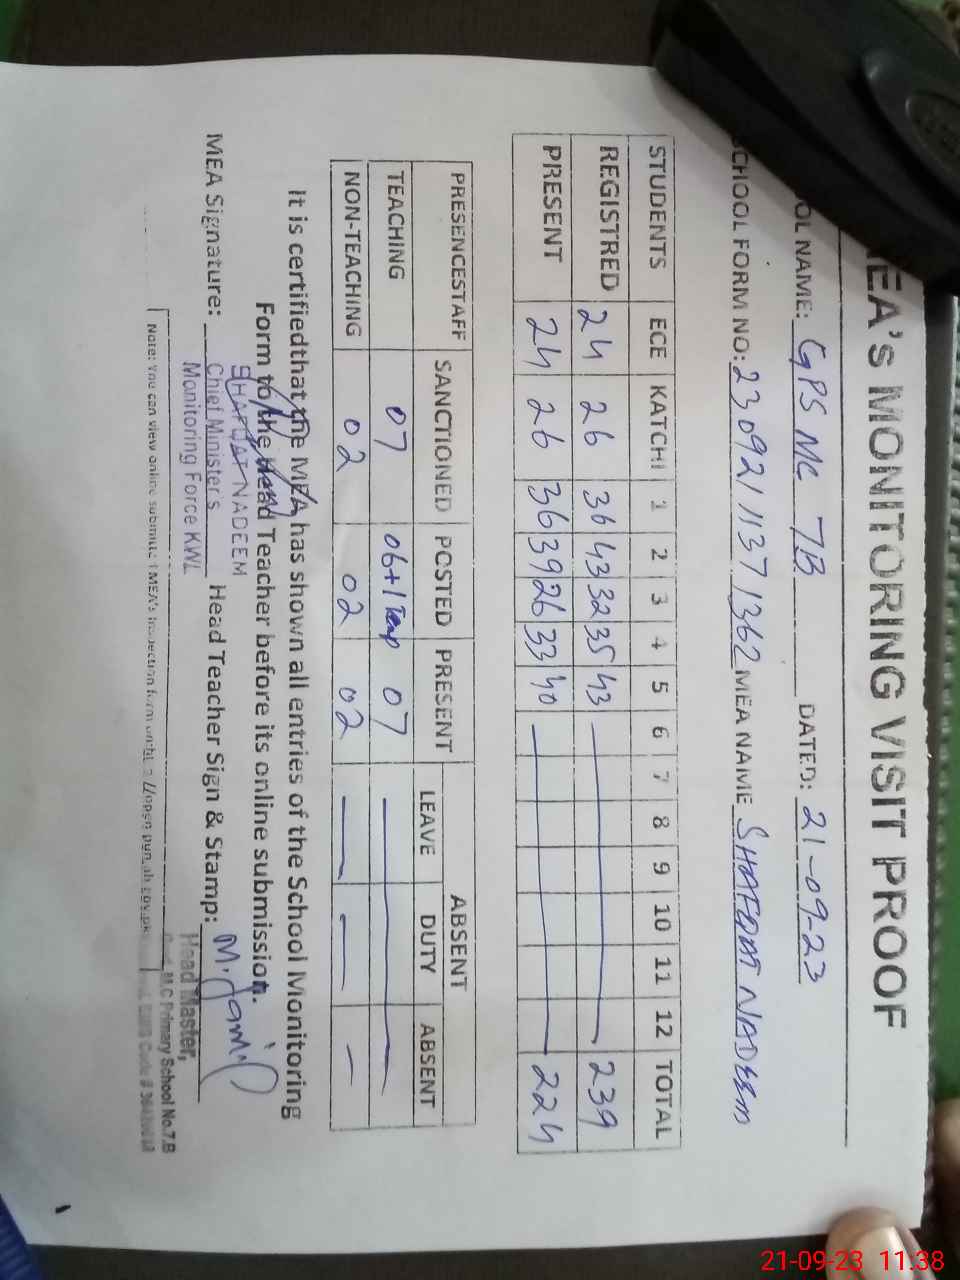 MEA's MONITORING VISIT PROOF
OL NAME: GPS MC 7B DATED: 21-09-23
SCHOOL FORM NO: 2309211137 1362 MEA NAME SHAFQAT NADEEM
STUDENTS ECE KATCHI 1 2 3 4 5 6 7 8 9 10 11 12 TOTAL
REGISTRED 24 26 36 43 32 35 43 239
PRESENT 24 26 36 39 26 33 40 224
PRESENCESTAFF SANCTIONED POSTED PRESENT ABSENT
LEAVE DUTY ABSENT
TEACHING 07 06+1 Temp 07
NON-TEACHING 02 02 02
It is certifiedthat the MEA has shown all entries of the School Monitoring
Form to the Head Teacher before its online submission.
MEA Signature: Head Teacher Sign & Stamp: M. Jamil
SHAFQAT NADEEM
Chief Minister's
Monitoring Force KWL
Head Master,
M.C Primary School No.7.B
Note: You can view online submitted MEA's Inspection form
21-09-23 11:38